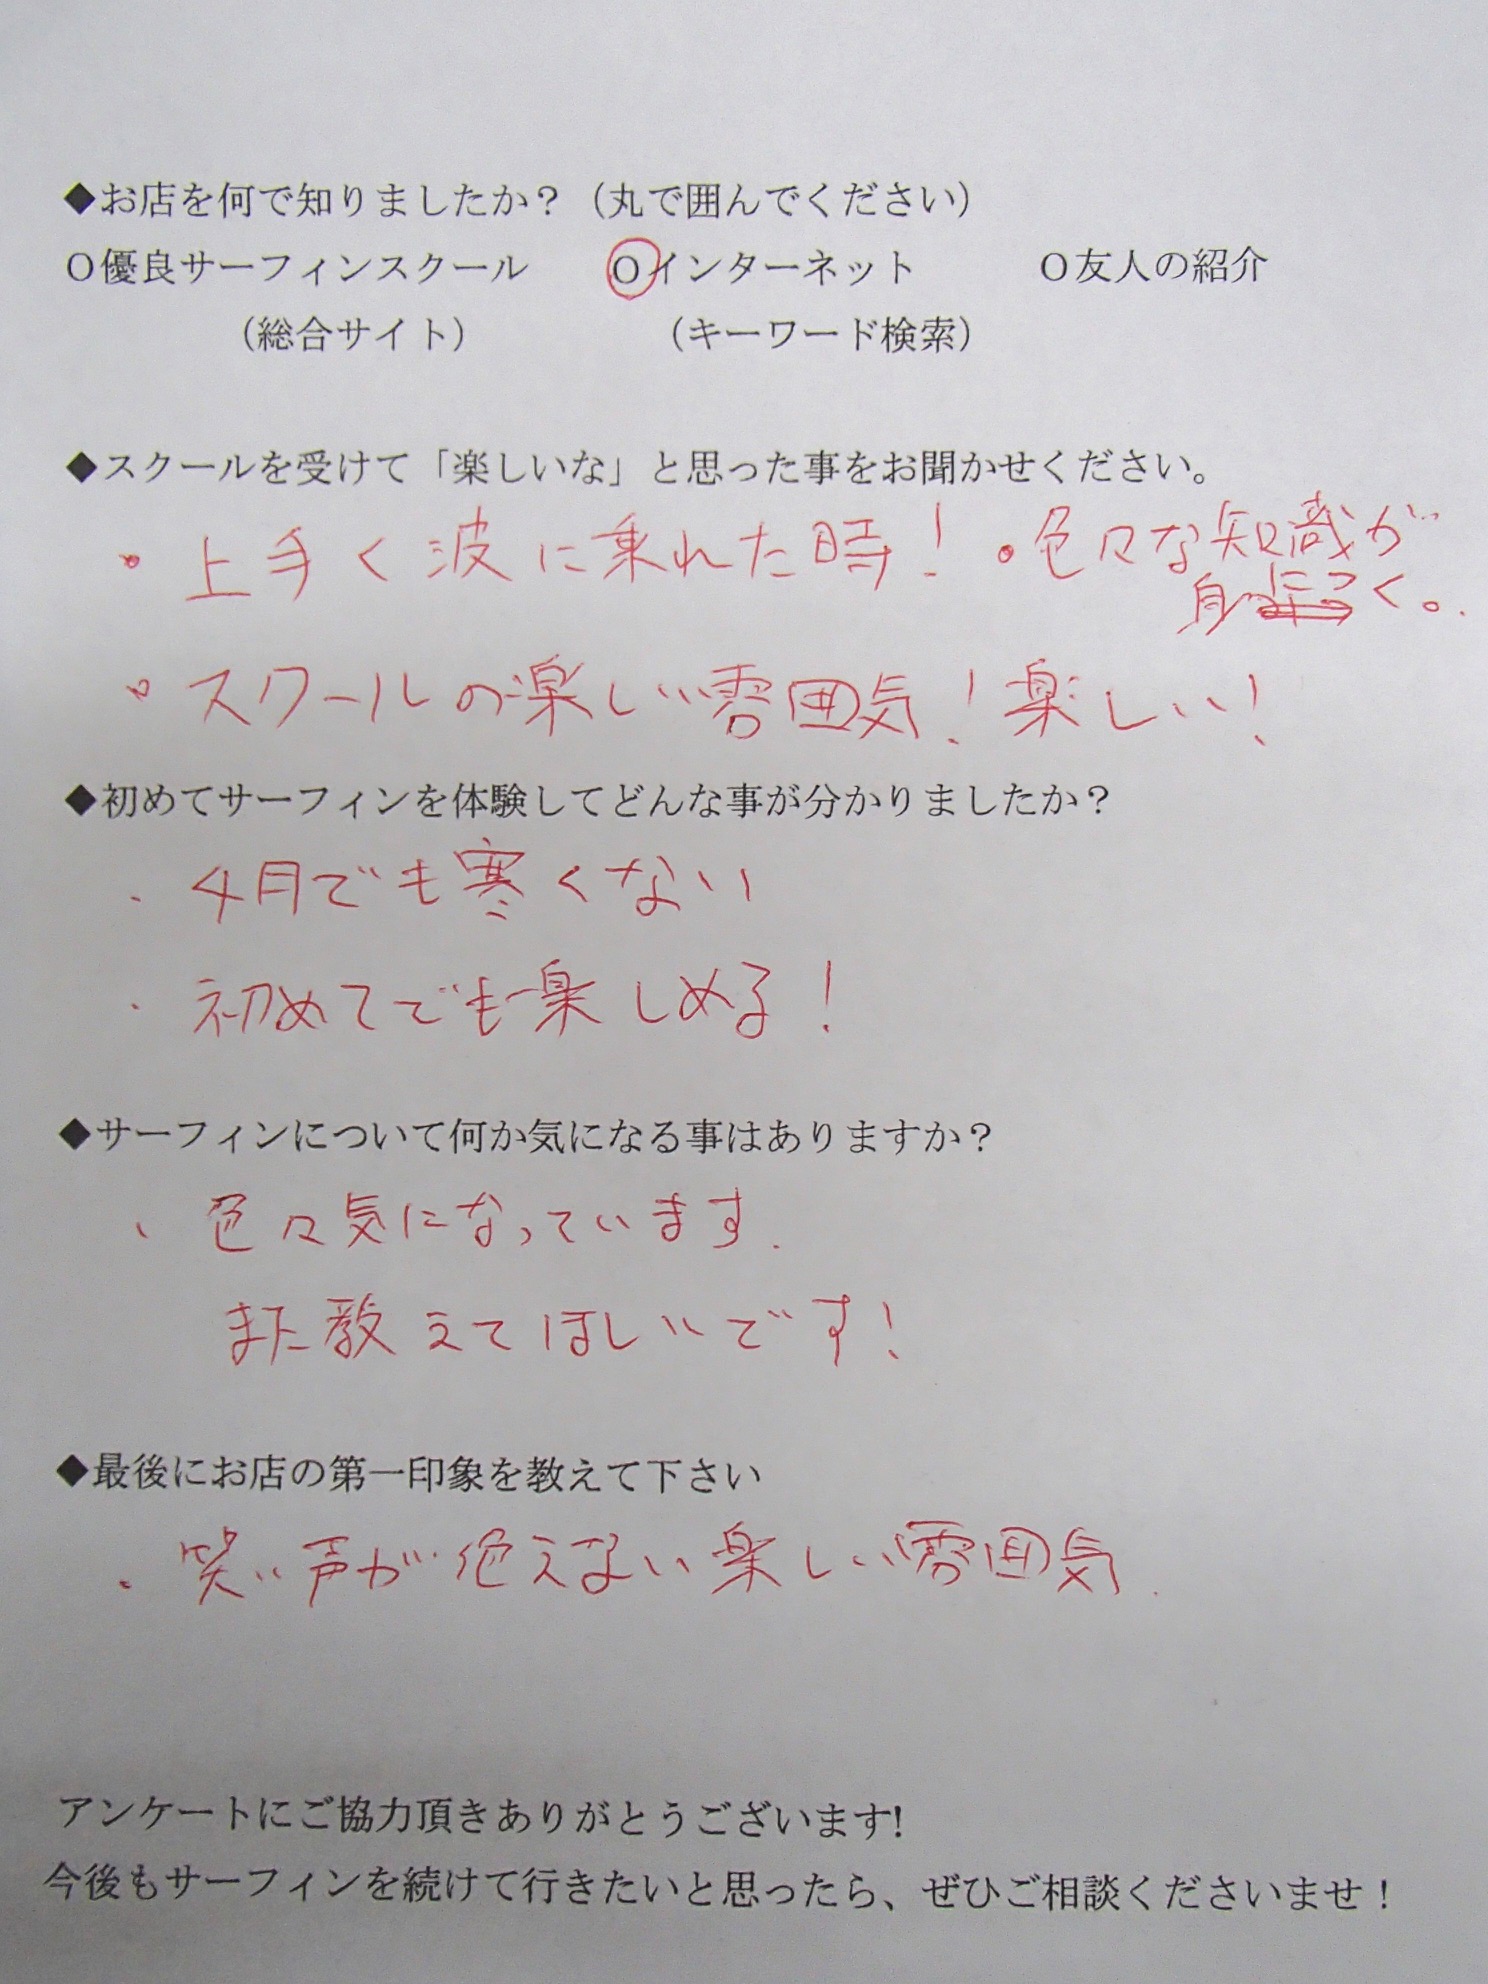 ◆お店を何で知りましたか？（丸で囲んでください）
O優良サーフィンスクール　Oインターネット　O友人の紹介
（総合サイト）　（キーワード検索）
◆スクールを受けて「楽しいな」と思った事をお聞かせください。
・上手く波に乗れた時！・色々な知識が
身につく。
・スクールの楽しい雰囲気！楽しい！
◆初めてサーフィンを体験してどんな事が分かりましたか？
・4月でも寒くない
・初めてでも楽しめる！
◆サーフィンについて何か気になる事はありますか？
・色々気になっています.
また教えてほしいです！
◆最後にお店の第一印象を教えて下さい
・笑い声が絶えない楽しい雰囲気.
アンケートにご協力頂きありがとうございます!
今後もサーフィンを続けて行きたいと思ったら、ぜひご相談くださいませ！